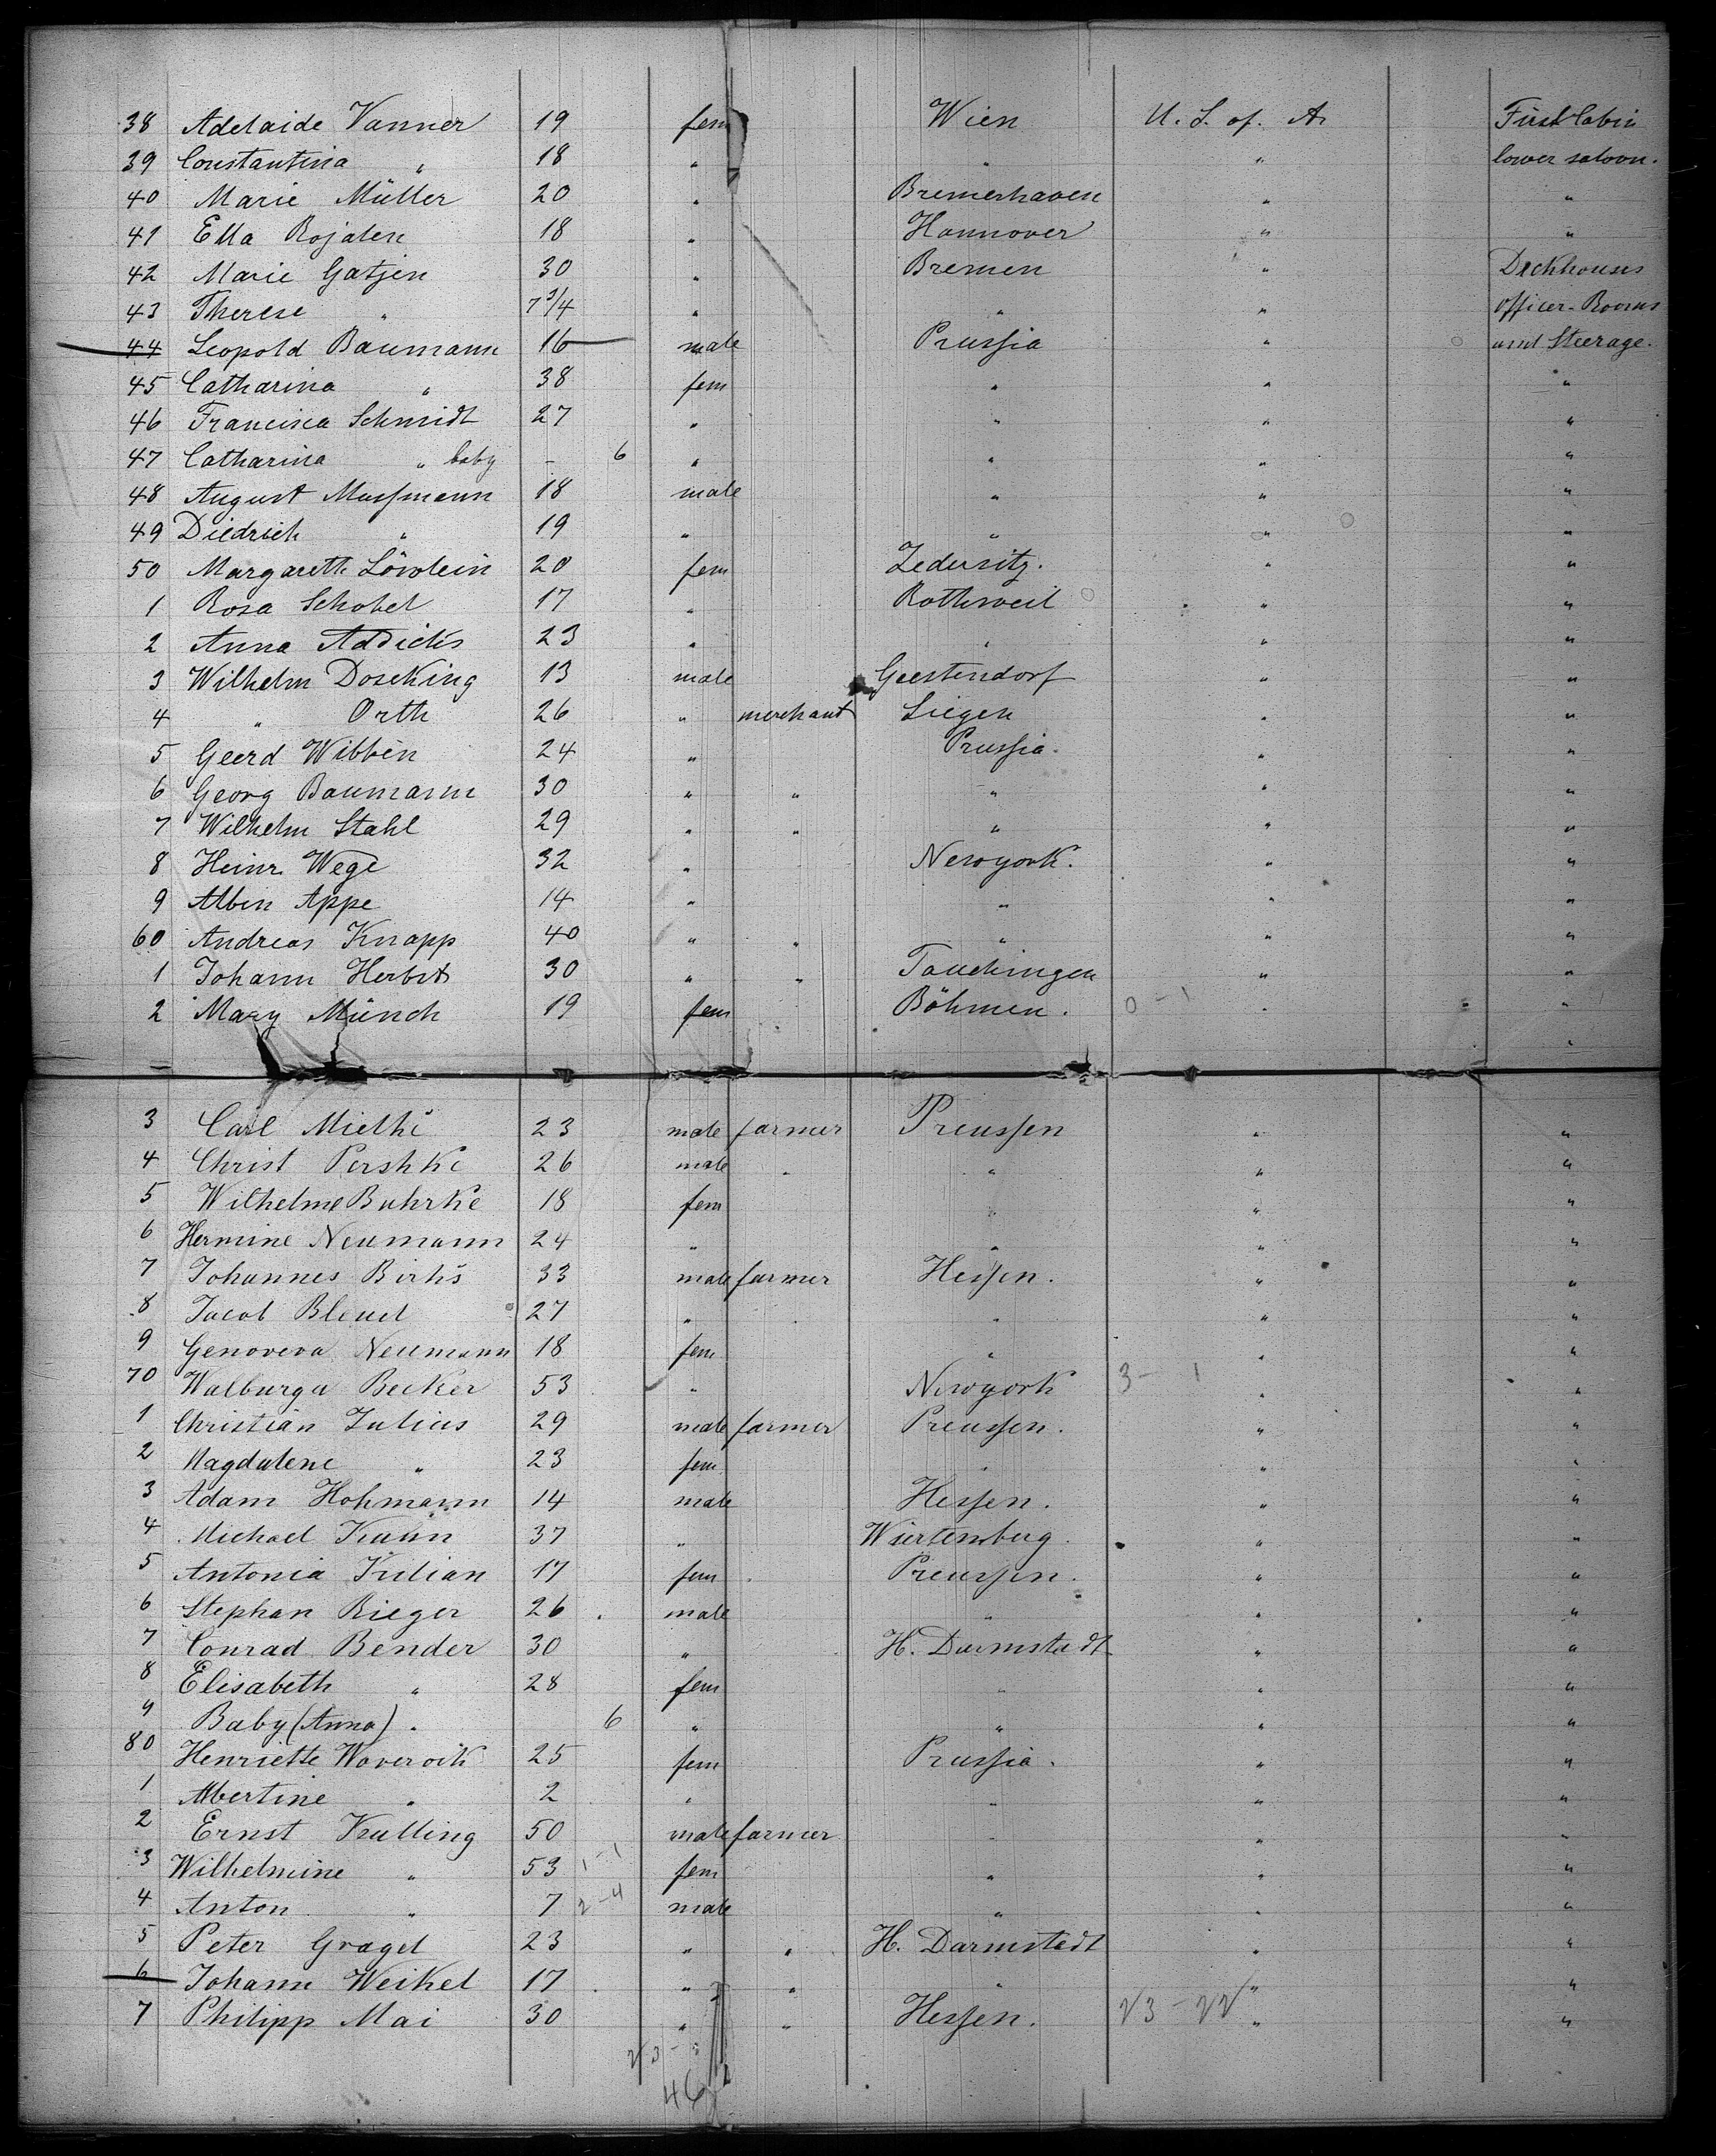 38 Adelaide Vanner 19 fem Wien U. S. of. A. First Cabin
39 Constantina " 18 " " " lower saloon.
40 Marie Müller 20 " Bremerhaven " "
41 Ella Rojahn 18 " Hannover " "
42 Marie Gatjen 30 " Bremen " Deckhouses
43 Therese " 7 3/4 " " " officer-Rooms
44 Leopold Baumann 16 male Prussia " and Steerage.
45 Catharina " 38 fem " " "
46 Francisca Schmidt 27 " " " "
47 Catharina " baby - 6 " " " "
48 August Mussmann 18 male " " "
49 Diedrich " 19 " " " "
50 Margareth Löwlein 20 fem Zedersitz. " "
1 Rosa Schobel 17 " Rothweil " "
2 Anna Addicks 23 " " " "
3 Wilhelm Doseking 13 male Geestendorf " "
4 " Orth 26 " merchant Siegen " "
5 Geerd Wibben 24 " Prussia. " "
6 Georg Baumann 30 " " " " "
7 Wilhelm Stahl 29 " " " " "
8 Heinr. Wege 32 " Newyork. " "
9 Albin Appe 14 " " " "
60 Andreas Knapp 40 " " " " "
1 Johann Herbst 30 " " Tauchingen " "
2 Mary Münch 19 fem Böhmen. 0-1 " "
"
3 Carl Miethe 23 male farmer Preussen " "
4 Christ Pershke 26 male " " " "
5 Wilhelme Buhrke 18 fem " " "
6 Hermine Neumann 24 " " " "
7 Johannes Birks 33 male farmer Hessen. " "
8 Jacob Bleud 27 " " " "
9 Genoveva Neumann 18 fem " " "
70 Walburga Becker 53 " Newyork 3-1 " "
1 Christian Julius 29 male farmer Preussen. " "
2 Magdalene " 23 fem " " "
3 Adam Hohmann 14 male Hessen. " "
4 Michael 37 " Würtemberg. " "
5 Antonia Kilian 17 fem Preussen. " "
6 Stephan Rieger 26 male " " "
7 Conrad Bender 30 " H. Darmstadt " "
8 Elisabeth " 28 fem " " "
9 Baby (Anna) " 6 " " " "
80 Henriette 25 fem Prussia. " "
1 Albertine " 2 " " " "
2 Ernst Kulling 50 male farmer " " "
3 Wilhelmine " 53 1-1 fem " " "
4 Anton " 7 2-4 male " " "
5 Peter Gragel 23 " " H. Darmstadt " "
6 Johann Weikel 17 " " " " "
7 Philipp Mai 30 " " Hessen. 23-22 " "
46